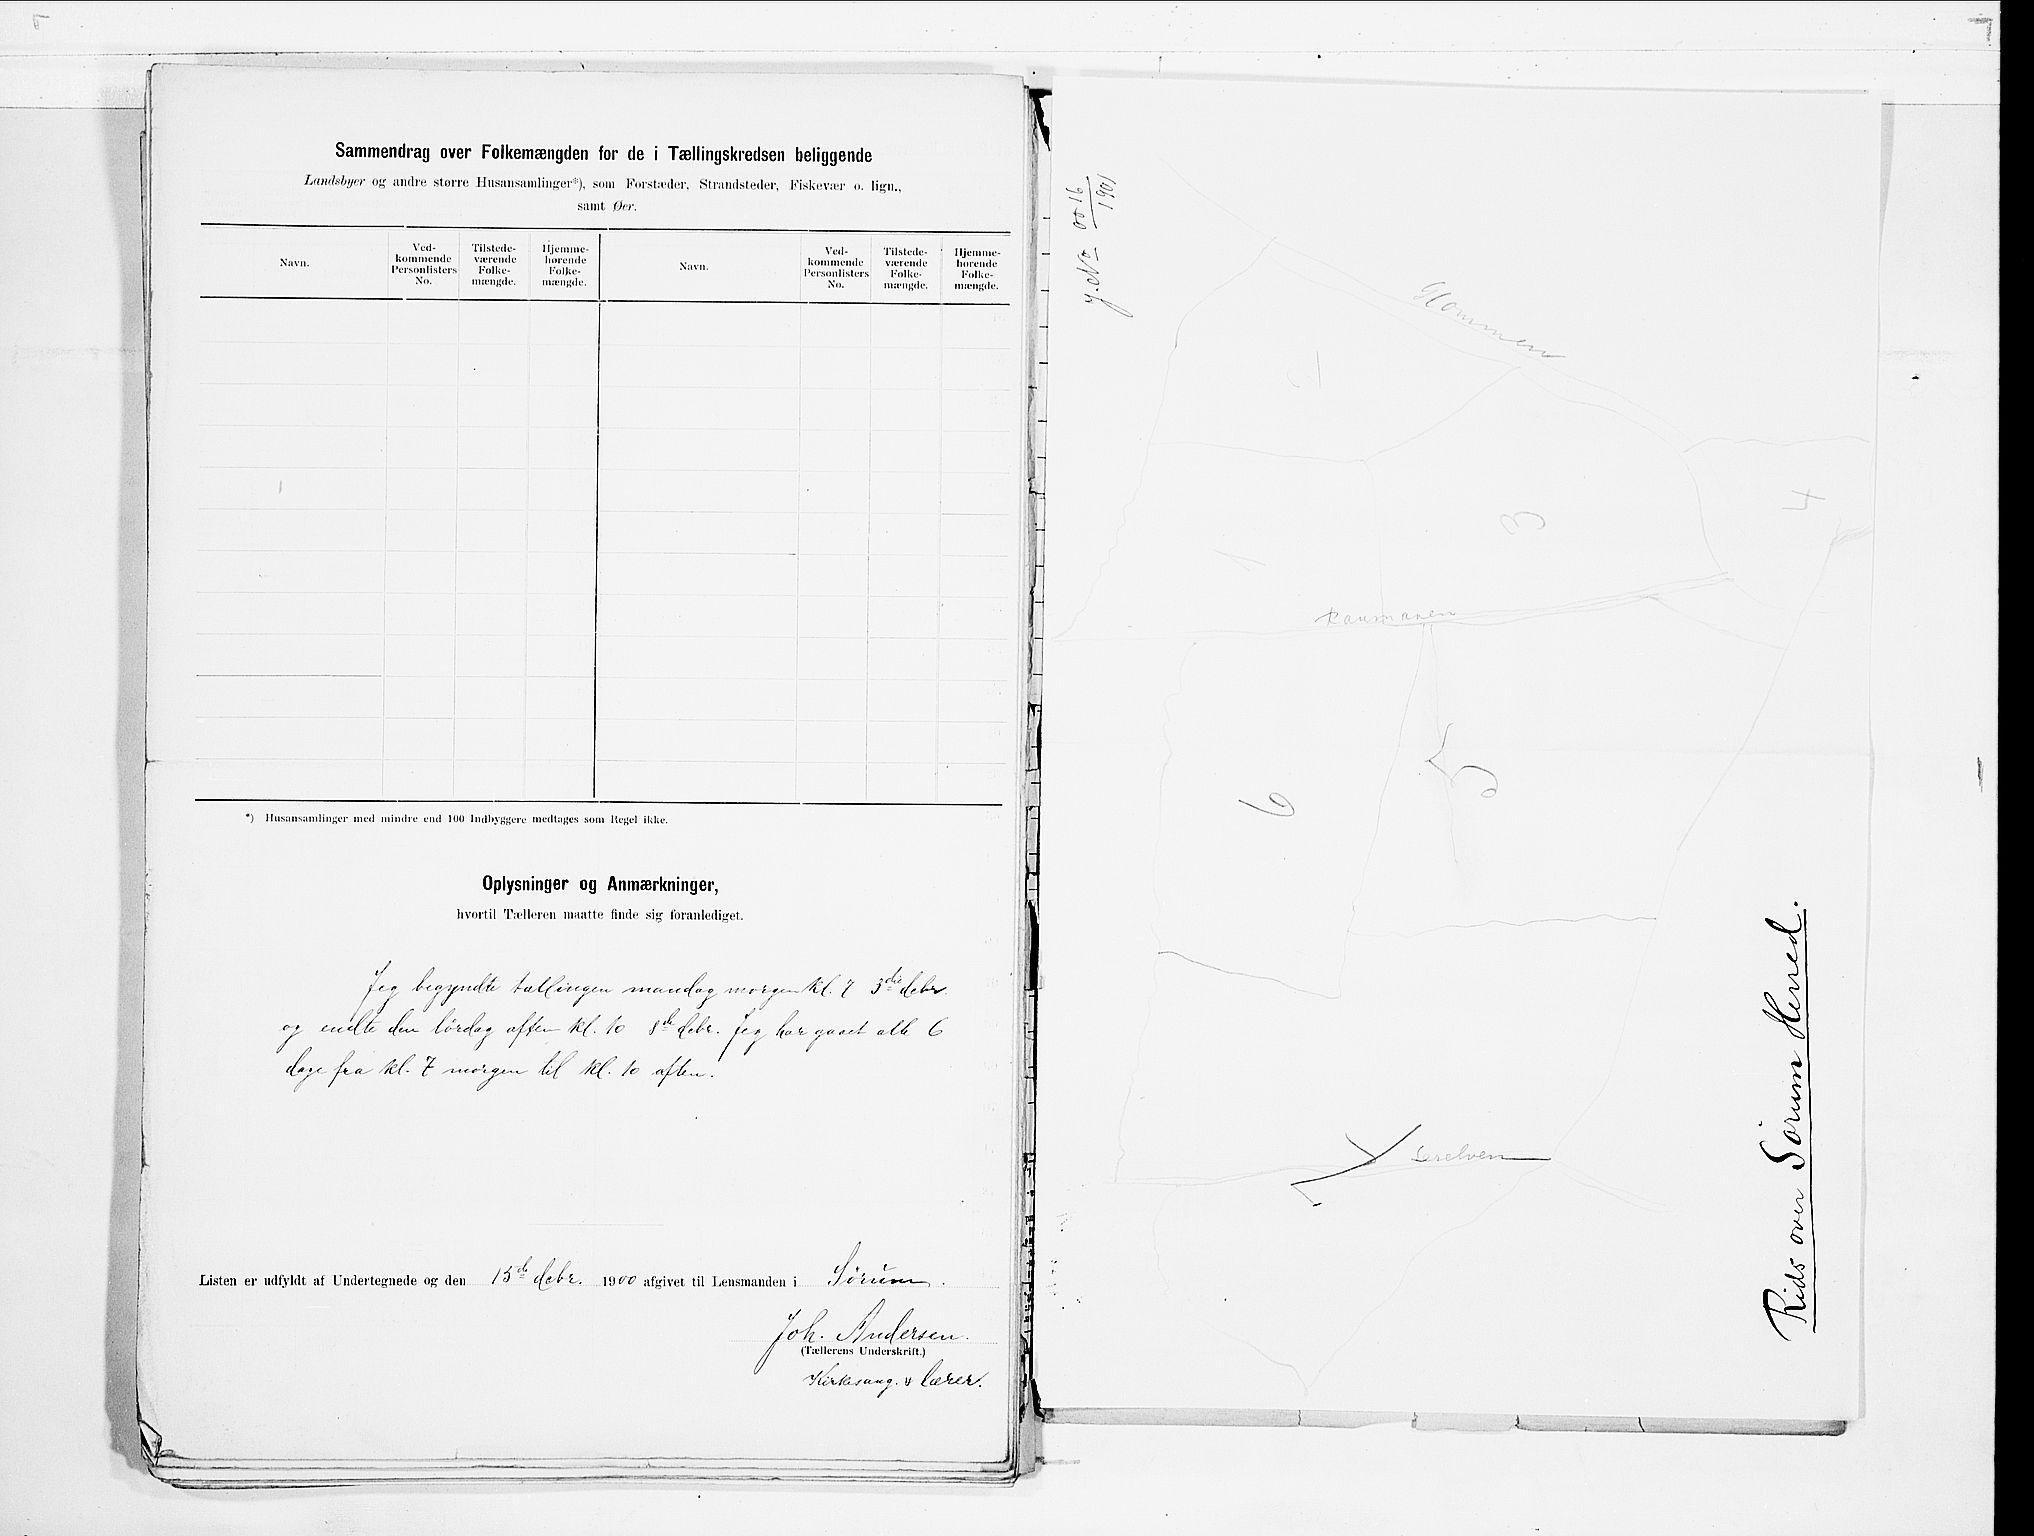 Sammendrag over Folkemængden for de i Tællingskredsen beliggende
Landsbyer og andre større Husansamlinger*), som Forstæder, Strandsteder, Fiskevær o. lign.,
samt Øer.
Navn.
Ved-
kommende
Personlisters
No.
Tilstede-
værende
Folke-
mængde.
Hjemme-
hørende
Folke-
mængde.
Navn.
Ved-
kommende
Personlisters
No.
Tilstede-
værende
Folke-
mængde.
Hjemme-
hørende
Folke-
mængde.
*) Husansamlinger med mindre end 100 Indbyggere medtages som Regel ikke.
Oplysninger og Anmærkninger,
hvortil Tælleren maatte finde sig foranlediget.
Jeg begyndte tællingen mandag morgen kl. 7 3die debr.
og endte den lördag aften kl. 10 8de debr. Jeg har gaaet alle 6
dage fra kl. 7 morgen til kl. 10 aften.
Listen er udfyldt af Undertegnede og den 15de debr. 1900 afgivet til Lensmanden i Sörum.
Joh. Andersen.
(Tællerens Underskrift.)
Kirkesang. & lærer.
1901
Glommen
3
4
1
Raumanen
5
6
Rids over Sörum Herred.